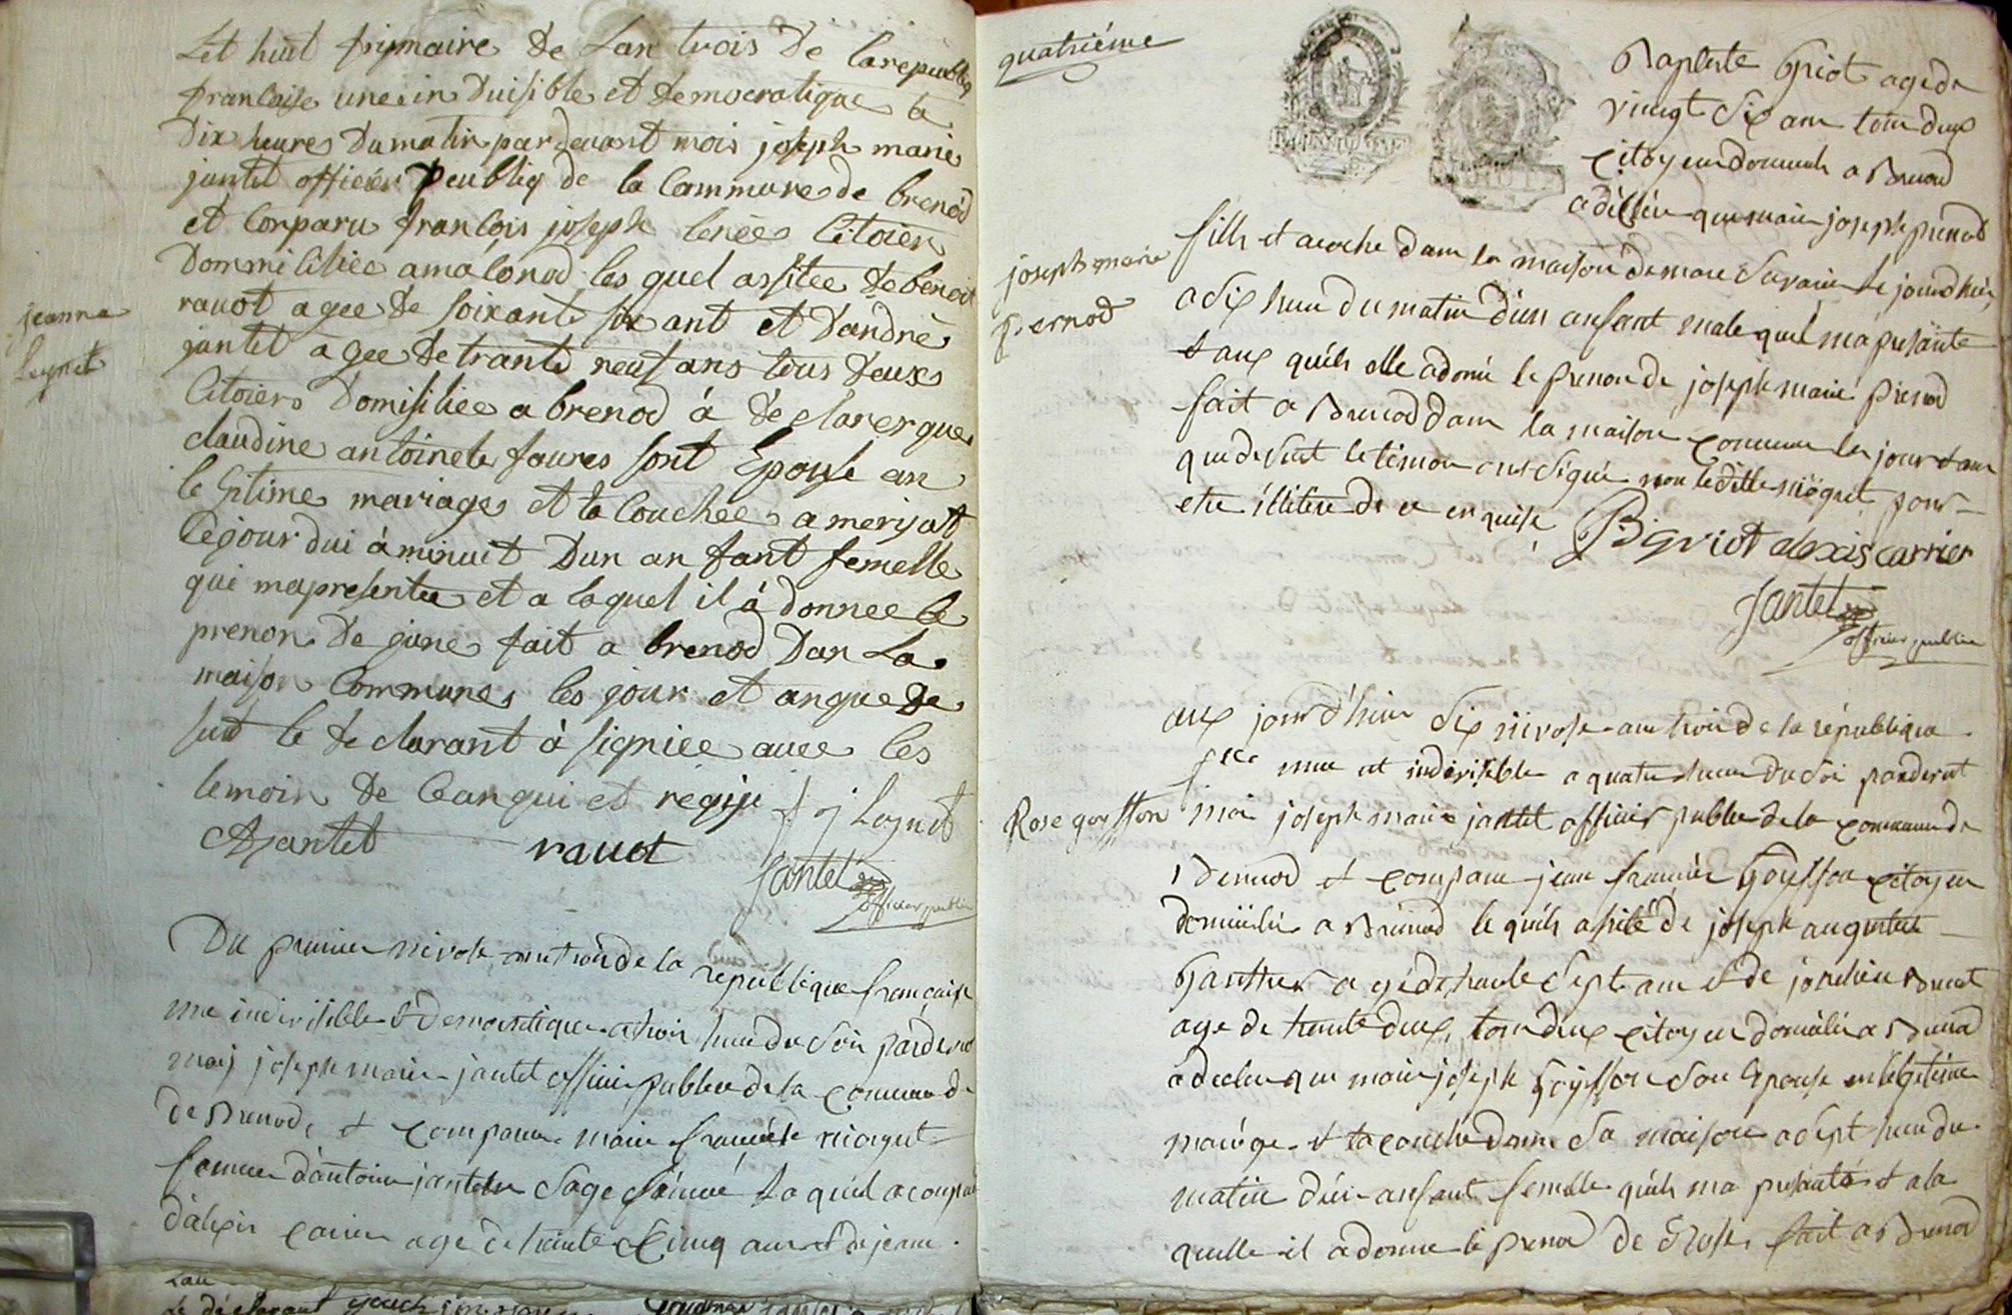 Let huit frimaire de Lan trois de la republiq
francaise une ein Duisible et democratique a
Dix heures Du matin par devant mois joseph marie
jantet officier peubliq de la Commune de brenod
et Conparu francois joseph
Dommilihée a les quel assitée de benoit
ravot agee de soixante six ant et Dandré
jantet agee de trante neuf ans tous deuxs
Citoiens Domisiliee a brenod à declarer que
claudine antoinete faures sont Epouse an
legitime mariage et ta Couchee a merisat
Cejour dui à minuit Dun an fant femelle
qui mapresentee et a laquel il à donnee le
prenon de jane fait a brenod Dan La
maison Communes les jour et anque de
sut le declarant à signiee avec les
temoin de Ceanqui et regiji f j
Ajantet ravot
Jantet
officier public
jeanne
Du premier nivose an trois de la republique francaise
une indivisible et democratique a trois heure du soir pardevant
moy joseph marie jantet officier publiec de la commune de
de Brenod, et comparu marie francoise niogret
femme dantoine jantet sage femme la quel acompa
dalexis carrier age de trante cinq ans et de jean
quatriéme
Baptiste griot age de
vingt six ans tous deux
citoyens domicili a Brenod
a déclaré que marie joseph pernod
fille et acouche dans la maison de marc savarin le jourdhui
a six heure du matin d'un anfant male quel ma presante
et aux quels elle adonné le prenon de joseph marie pernod
fait a Brenod dans la maison commune les jour et an
que desut le temoin ont signé non laditte niogret pour
etre illitere de ce enquise
joseph marie
pernod
B griot alexis carrier
Jantet
officier public
aux jourd'huis six nivose an trois de la république
fse une et indivisible a quatre heure du soir pardevant
moi joseph marie jantet officier publiec de la commune de
Brenod et comparu jean francois goyffon citoyen
domicilié a Brenod le quels assité de joseph augustte
age de trante sept ans et de
age de trante deux, tous deux citoyen domicilié a Brenod
a declare que marie joseph goyffon son Epouse en légitime
mariage et ta couché dans sa maison a sept heure du
matin d'un anfant femelle quels ma presanté et a la
quelle il a donne le prenon de Rose, fait a Brenod
Rose goyffon